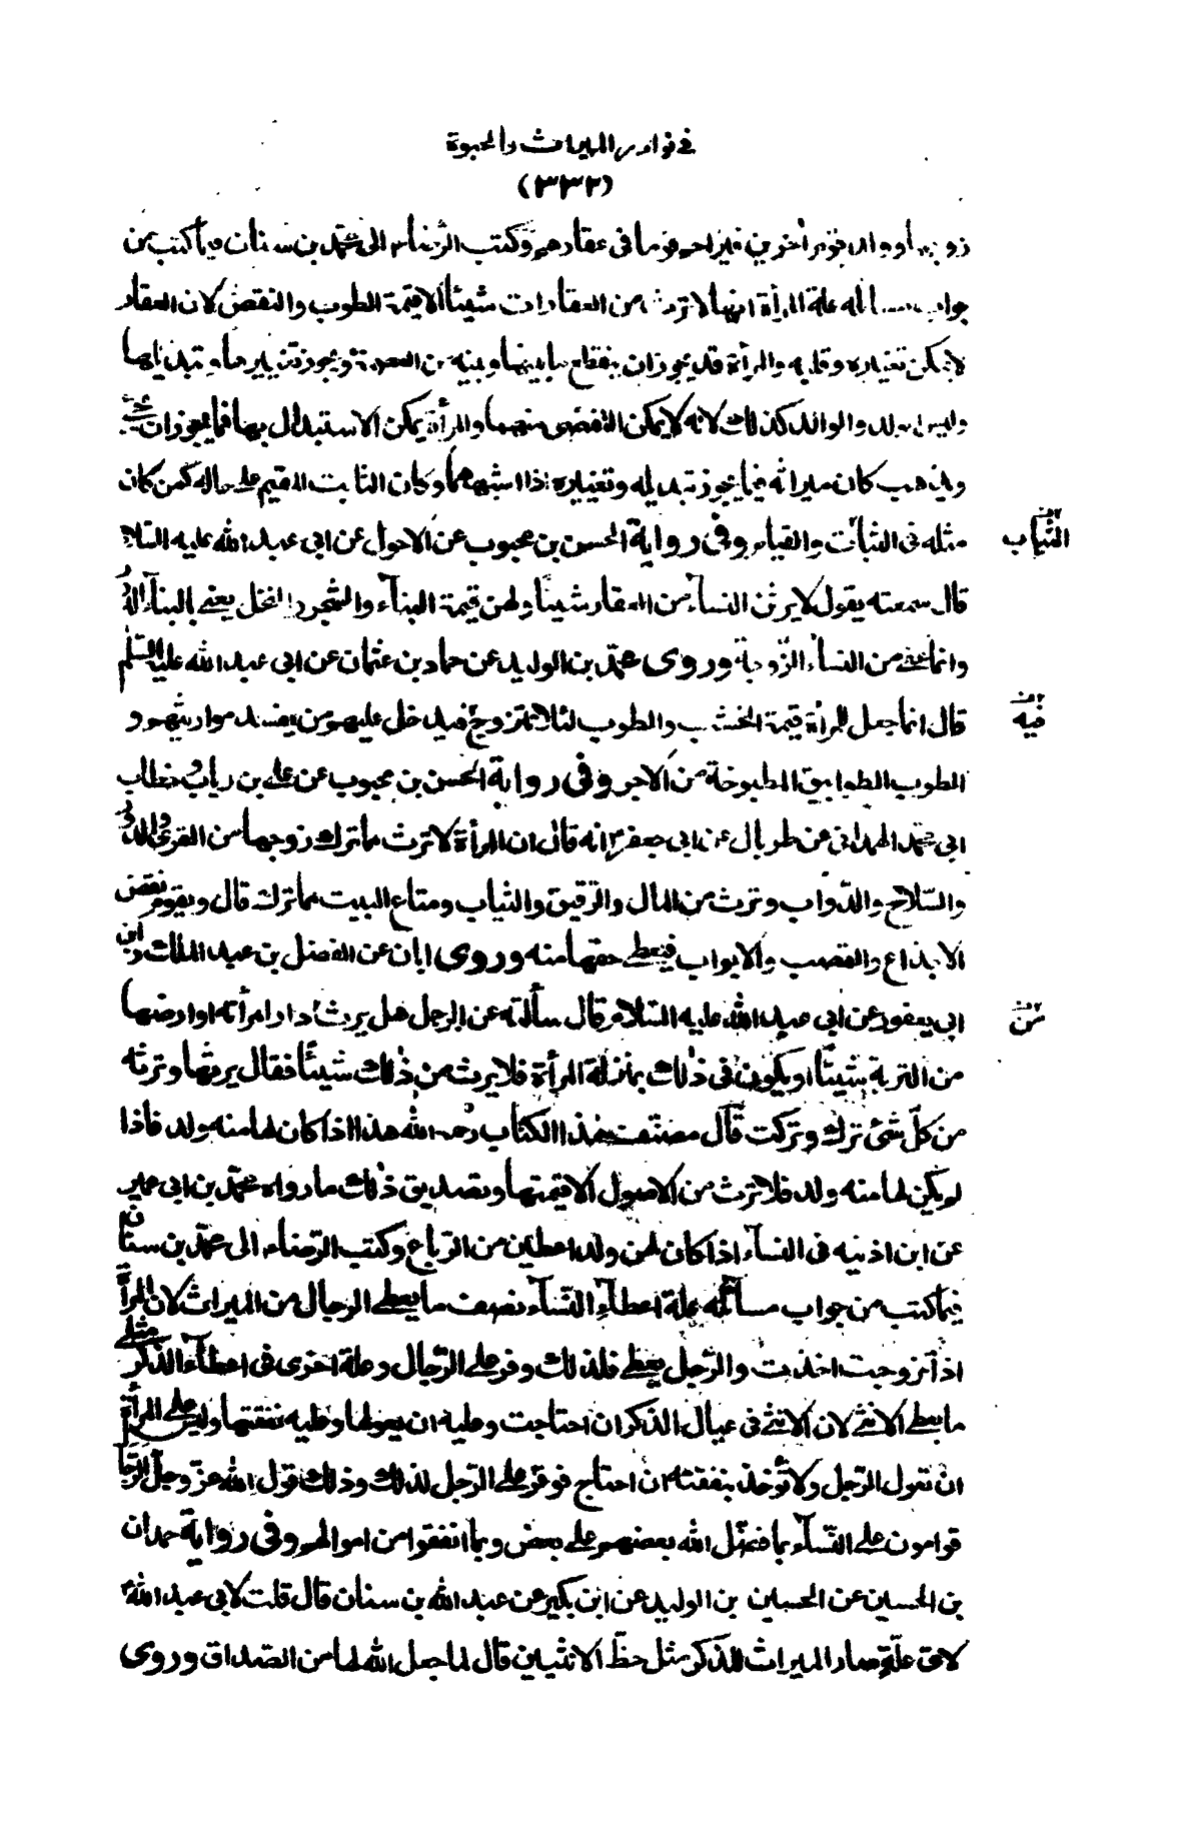 في نوادر الميراث والحبوة
(٣٣٢)
زوجها او ولد قوم اخرين فيزاحم قوما في عقارهم وكتب الرضاء الى محمد بن سنان فيما كتب من
جواب مسائله علة المرأة انها لا ترث من العقارات شيئا الا قيمة الطوب والنقض لان العقار
لا يمكن تغييره وقلبه والمرأة قد يجوز ان ينقطع ما بينها وبينه من العصمة ويجوز تغييرها وتبديلها
وليس الولد والوالد كذلك لانه لا يمكن التفصى منهما والمرأة يمكن الاستبدال بها فما يجوز ان يجئ
ويذهب كان ميراثه فيما يجوز تبديله وتغييره اذا اشبههما وكان الثابت المقيم على حاله كمن كان
مثله في الثبات والقيام وفي رواية الحسن بن محبوب عن الاحول عن ابي عبد الله عليه السلام
الثياب
قال سمعته يقول لا يرثن النساء من العقار شيئا ولهن قيمة البناء والشجر والنخل يعني بالبناء الدور
وانما عنى من النساء الزوجة وروى محمد بن الوليد عن حماد بن عثمان عن ابي عبد الله عليه السلام
قال انما جعل للمرأة قيمة الخشب والطوب لئلا تتزوج فيدخل عليهم من يفسد مواريثهم و
فيه
الطوب الطوابيق المطبوخة من الاجر وفي رواية الحسن بن محبوب عن علي بن رباب وخطاب
ابي محمد الهمداني عن طربال عن ابي جعفر انه قال ان المرأة لا ترث مما ترك زوجها من القرى والدور
والسلاح والدواب وترث من المال والرقيق والثياب ومتاع البيت مما ترك قال ويقوم نقض
الاجذاع والقصب والابواب فيعطى حقها منه وروى ابان عن الفضل بن عبد الملك وابن
ابي يعفور عن ابي عبد الله عليه السلام قال سألته عن الرجل هل يرث دار امرأته او ارضها
من
من التربة شيئا او يكون في ذلك بمنزلة المرأة فلا يرث من ذلك شيئا فقال يرثها وترثه
من كل شئ ترك وتركت قال مصنف هذا الكتاب رحمه الله هذا اذا كان لها منه ولد فاذا
لم يكن لها منه ولد فلا ترث من الاصول الا قيمتها وتصديق ذلك ما رواه محمد بن ابي عمير
عن ابن اذنيه في النساء اذا كان لهن ولد اعطين من الرباع وكتب الرضاء الى محمد بن سنان
فيما كتب من جواب مسائله علة اعطاء النساء نصف ما يعطى الرجال من الميراث لان المرأة
اذا تزوجت اخذت والرجل يعطي فلذلك وفر على الرجال وعلة اخرى في اعطاء الذكر مثلي
ما يعطى الانثى لان الانثى في عيال الذكر ان احتاجت وعليه ان يعولها وعليه نفقتها وليس على المرأة
ان تعول الرجل ولا تؤخذ بنفقته ان احتاج فوفر على الرجل لذلك وذلك قول الله عز وجل الرجال
قوامون على النساء بما فضل الله بعضهم على بعض وبما انفقوا من اموالهم وفي رواية حمدان
بن الحسين عن الحسين بن الوليد عن ابن بكير عن عبد الله بن سنان قال قلت لابي عبد الله
لاى علة صار الميراث للذكر مثل حظ الانثيين قال لما جعل الله لها من الصداق وروى